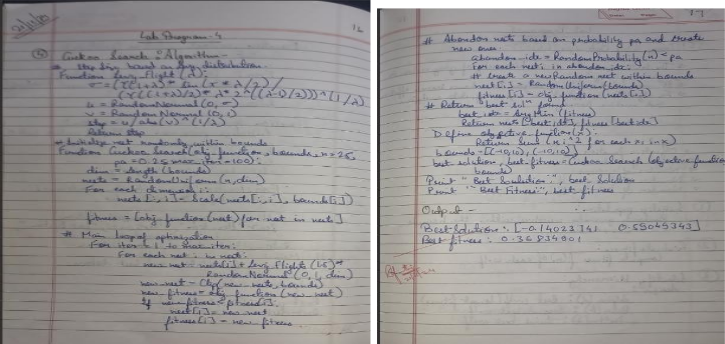 Lab Program - 4
Cuckoo Search Algorithm -
Step Size based on levy distribution.
Function Levy_Flight (λ):
u = RandomNormal (0, σ)
v = RandomNormal (0, 1)
step = u / abs(v) ^ (1/λ)
Return step
# Initialize nest randomly within bounds
Function Cuckoo_Search (obj_function, bounds, n = 25,
pa = 0.25 max_iter = 100):
dim = length (bounds)
nests = RandomUniform (n, dim)
For each dimension i:
nests [:, i] = Scale (nests [:, i], bounds [i])
fitness = [obj_function (nest) for nest in nests]
# Main loop of optimization
For iter = 1 to maxiter:
For each nest i in nests:
new_nest = nests[i] + Levy_Flight (1.5) *
RandomNormal (0, 1, dim)
new_nest = Clip (new_nests, bounds)
new_fitness = obj_function (new_nest)
If new_fitness < fitness[i]:
nests[i] = new_nest
fitness[i] = new_fitness
17
# Abandon nests based on probability pa and create
new ones
abandon_idx = RandomProbability (n) < pa
For each nest i in abandon_idx:
# Create a new Random nest within bounds
nest [i] = Random Uniform (bounds)
fitness [i] = obj_function (nests [i])
# Return "best sol" found
best_idx = ArgMin (fitness)
Return nests [best_idx], fitness [best_idx]
Define objective_function (x):
Return Sum (x_i ^ 2 for each x_i in x)
bounds = [(-10, 10), (-10, 10)]
best_solution, best_fitness = Cuckoo_Search (objective_function,
bounds)
Print "Best Solution:", best_solution
Print "Best Fitness:", best_fitness
Output -
Best Solution : [-0.14023741 0.59065343]
Best fitness : 0.36834901